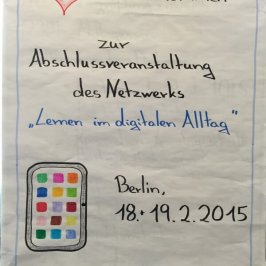 zur
Abschlussveranstaltung
des Netzwerks
„Lernen im digitalen Alltag"
Berlin,
18.+19.2.2015